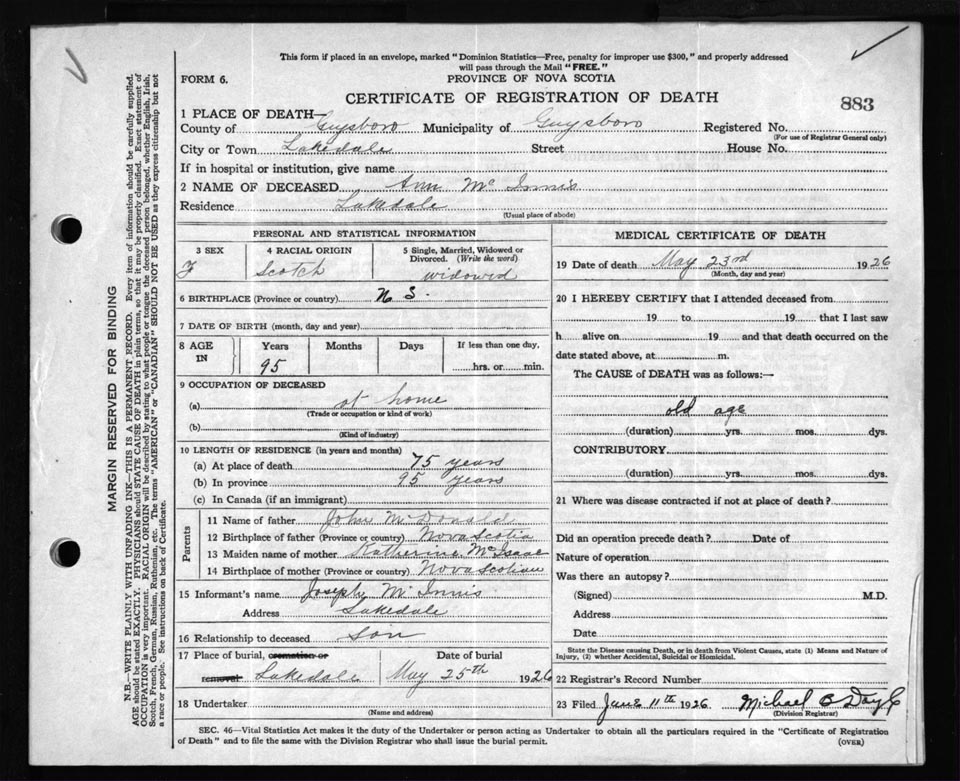 This form if placed in an envelope, marked "Dominion Statistics—Free, penalty for improper use $300," and properly addressed
will pass through the Mail "FREE."
FORM 6.
PROVINCE OF NOVA SCOTIA
CERTIFICATE OF REGISTRATION OF DEATH
883
1 PLACE OF DEATH—
County of Guysboro Municipality of Guysboro Registered No.
(For use of Registrar General only)
City or Town Lakedale Street House No.
If in hospital or institution, give name
2 NAME OF DECEASED Ann Mc Innis
Residence Lakedale
(Usual place of abode)
PERSONAL AND STATISTICAL INFORMATION
3 SEX 4 RACIAL ORIGIN 5 Single, Married, Widowed or Divorced. (Write the word)
F Scotch widowid
6 BIRTHPLACE (Province or country) N S.
7 DATE OF BIRTH (month, day and year)
8 AGE IN Years Months Days If less than one day,
95 hrs. or min.
9 OCCUPATION OF DECEASED
(a) at home
(Trade or occupation or kind of work)
(b)
(Kind of industry)
10 LENGTH OF RESIDENCE (in years and months)
(a) At place of death 75 years
(b) In province 95 years
(c) In Canada (if an immigrant)
Parents
11 Name of father John McDonald
12 Birthplace of father (Province or country) Nova Scotia
13 Maiden name of mother Katherine McIsaac
14 Birthplace of mother (Province or country) Nova Scotian
15 Informant's name Joseph Mc Innis
Address Lakedale
16 Relationship to deceased Son
17 Place of burial, cremation or removal Lakedale Date of burial May 25th 1926
18 Undertaker
(Name and address)
MEDICAL CERTIFICATE OF DEATH
19 Date of death May 23rd 1926
(Month, day and year)
20 I HEREBY CERTIFY that I attended deceased from
19 to 19 that I last saw
h alive on 19 and that death occurred on the
date stated above, at m.
The CAUSE of DEATH was as follows:—
old age
(duration) yrs. mos. dys.
CONTRIBUTORY
(duration) yrs. mos. dys.
21 Where was disease contracted if not at place of death?
Did an operation precede death? Date of
Nature of operation
Was there an autopsy?
(Signed) M.D.
Address
Date
State the Disease causing Death, or in death from Violent Causes, state (1) Means and Nature of
Injury, (2) whether Accidental, Suicidal or Homicidal.
22 Registrar's Record Number
23 Filed June 11th 1926 Michael C Doyle
(Division Registrar)
SEC. 46—Vital Statistics Act makes it the duty of the Undertaker or person acting as Undertaker to obtain all the particulars required in the "Certificate of Registration
of Death" and to file the same with the Division Registrar who shall issue the burial permit.
(OVER)
MARGIN RESERVED FOR BINDING
N.B.—WRITE PLAINLY WITH UNFADING INK—THIS IS A PERMANENT RECORD. Every item of information should be carefully supplied.
AGE should be stated EXACTLY. PHYSICIANS should STATE CAUSE OF DEATH in plain terms, so that it may be properly classified. Exact statement of
OCCUPATION is very important. RACIAL ORIGIN will be described by stating to what people or tongue the deceased person belonged, whether English, Irish,
Scotch, French, German, Russian, Ruthenian, etc. The terms "AMERICAN" or "CANADIAN" SHOULD NOT BE USED as they express citizenship but not
a race or people. See instructions on back of Certificate.